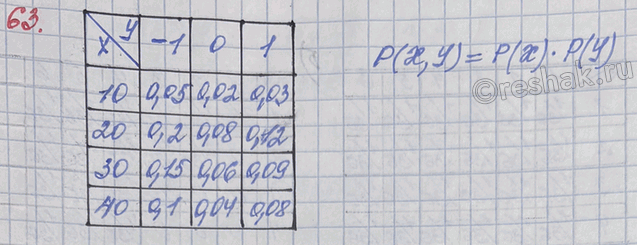 63.
X Y -1 0 1
10 0,05 0,02 0,03
20 0,2 0,08 0,12
30 0,15 0,06 0,09
40 0,1 0,04 0,08
P(X,Y)=P(X)·P(Y)
shutterstock